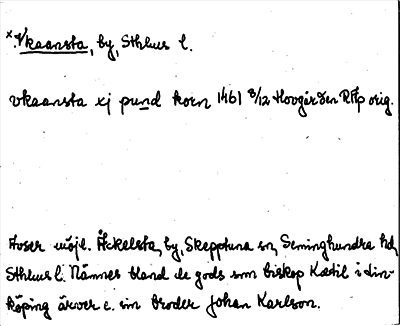 x. Vkaansta, by, Sthlms l.
vkaansta xj pund korn 1461 8/12 Hovgården RAp orig.
Avser möjl. Åkelsta, by, Skepptuna sn, Seminghundra hd,
Sthlms l. Nämnes bland de gods som biskop Kettil i Lin-
köping ärver e. sin broder Johan Karlsson.